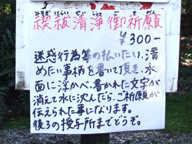 禊祓清浄御祈願
¥300-
迷惑行為等の払いたい、清
めたい事柄を書いて頂き、水
面に浮かべ、書かれた文字が
消えて水に沈んだら、ご祈願が
伝えられた事になります。
後ろの授与所までどうぞ。